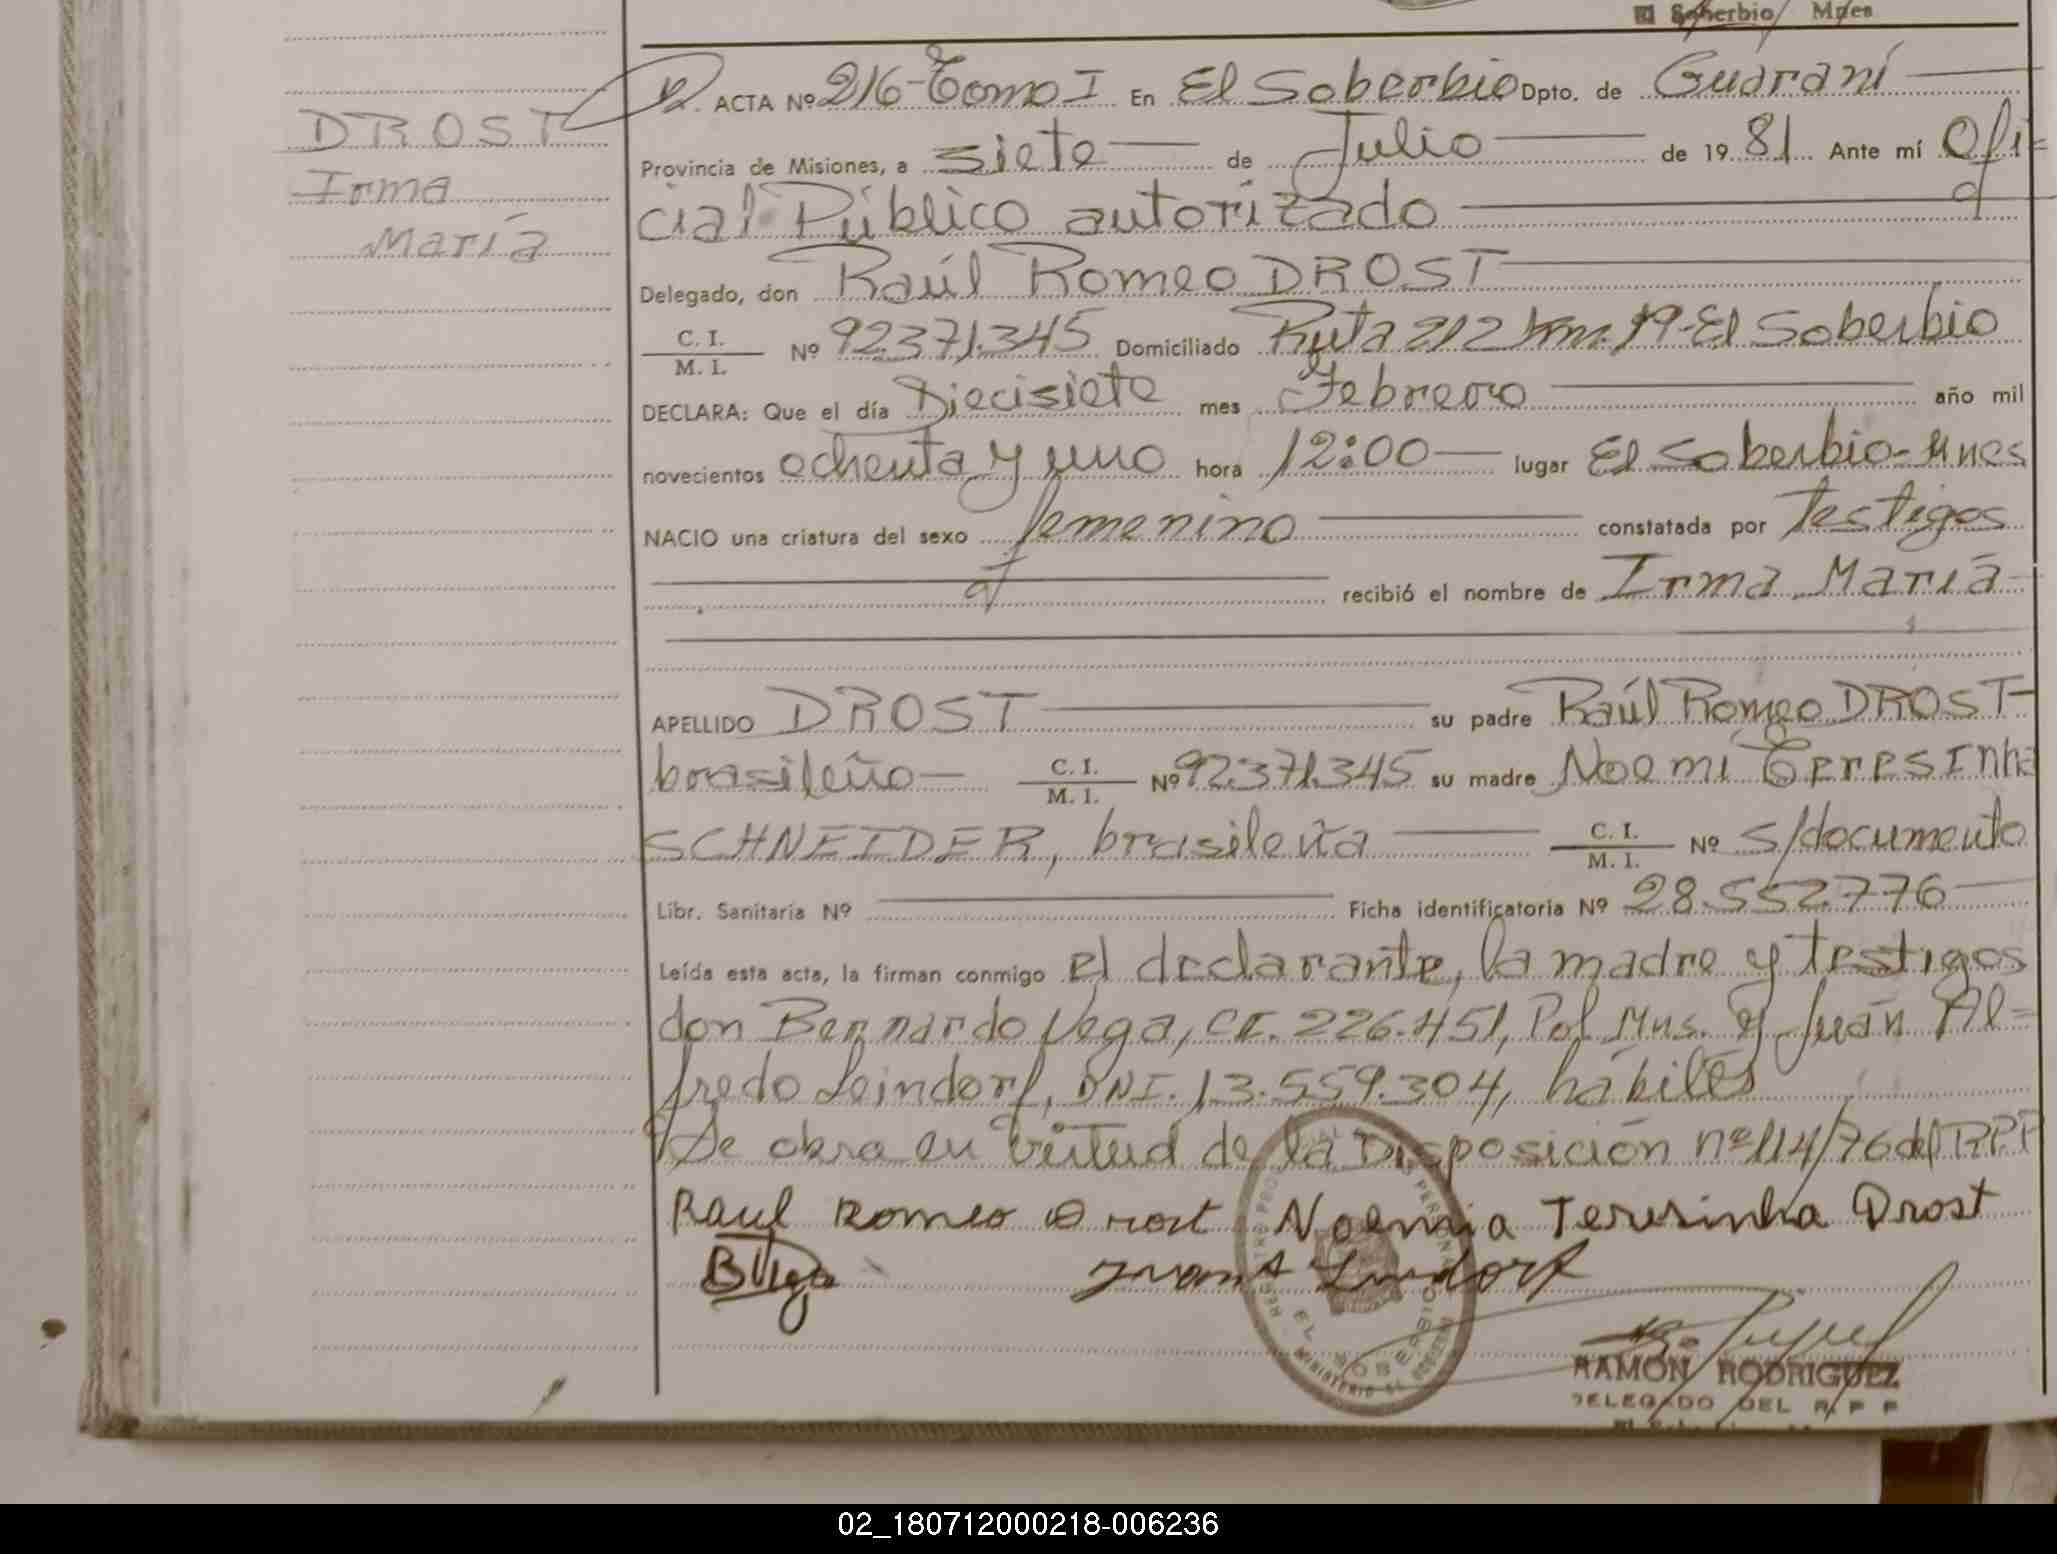 El Soberbio Mnes
DROST
Irma
María
ACTA Nº 216-Tomo I En El Soberbio Dpto. de Guaraní
Provincia de Misiones, a siete de Julio de 1981. Ante mí Ofi=
cial Público autorizado
Delegado, don Raúl Romeo DROST
C. I.
M. I. Nº 92.371.345 Domiciliado Ruta 212 km. 19-El Soberbio
DECLARA: Que el día Diecisiete mes Febrero año mil
novecientos ochenta y uno hora 12:00 lugar El Soberbio-Mnes
NACIO una criatura del sexo femenino constatada por Testigos
recibió el nombre de Irma María
APELLIDO DROST su padre Raúl Romeo DROST
brasileño C. I.
M. I. Nº 92.371.345 su madre Noemi Teresinha
SCHNEIDER, brasileña C. I.
M. I. Nº S/documento
Libr. Sanitaria Nº Ficha identificatoria Nº 28.552.776
Leída esta acta, la firman conmigo el declarante, la madre y testigos
don Bernardo Vega, CI. 226.451, Pol Mns. y Juán Al=
fredo Leindorf, DNI. 13.559.304, hábiles
Se obra en virtud de la Disposición nº 114/76 del RPP
Raul Romeo Drost Noemia Teresinha Drost
BVega Juan A Lindorf
EL SOBERBIO
RAMON RODRIGUEZ
DELEGADO DEL R P P
02_180712000218-006236